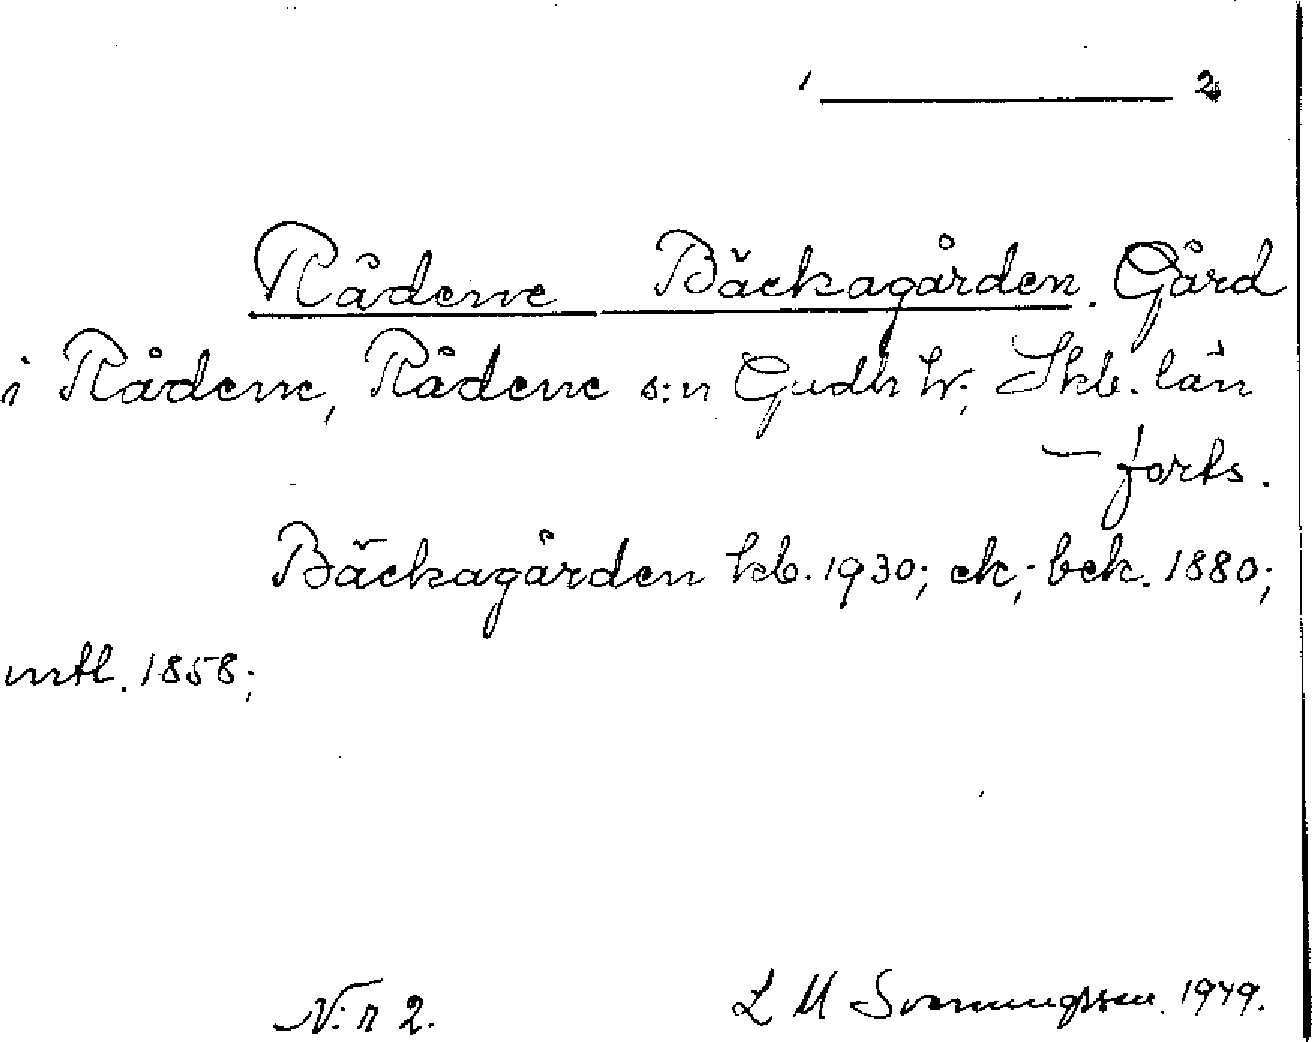 1 2
Rådene Bäckagården. Gård
i Rådene, Rådene s:n Gudh hr; Skb. län
— forts.
Bäckagården kb. 1930; ek,-bck. 1880;
mtl. 1858;
N:r 2. L M Svenningsson. 1949.